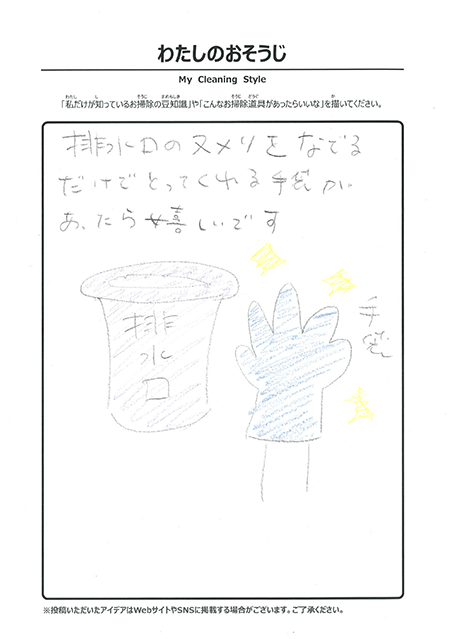 わたしのおそうじ
My Cleaning Style
「私だけが知っているお掃除の豆知識」や「こんなお掃除道具があったらいいな」を描いてください。
排水口のヌメリをなでる
だけでとってくれる手袋が
あったら嬉しいです
排水口
手袋
※投稿いただいたアイデアはWebサイトやSNSに掲載する場合がございます。ご了承ください。